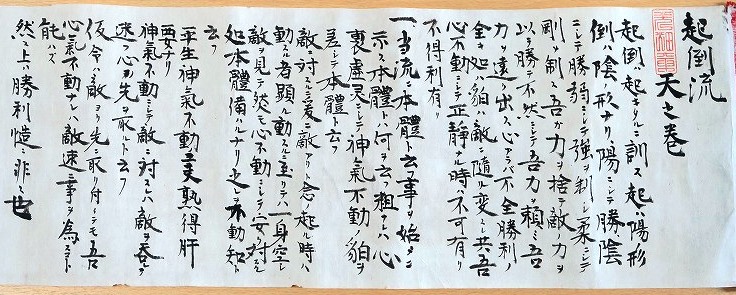 起倒流
天之巻
起倒ハ起キタルニ訓ス起ハ陽形
倒ハ陰ノ形ナリ陽ニシテ勝陰
ニシテ勝弱ニシテ強ヲ制シ柔ニシテ
剛ヲ制ス吾ガ力ヲ捨テ敵ノ力ヲ
以テ勝テ不然シテ吾力ヲ頼ミ吾
力ヲ出ス心アラバ不全勝利ノ
全キ処ハ豹ハ敵ニ随リ変ニ共吾
心不動ニシテ正静セ時ハ不可有リ
不得利有リ
一当流ニ本體ト云フ事ヲ始メニ
示ス本體トハ何ヲ云フ粗ケレハ心
裏虚灵ニシテ神氣不動ノ豹ヲ
差シテ本體ト云フ
敵ニ対スルニ爰ニ敵アリト念ノ起ル時ハ
動スル者顕ル動スルニ至リテハ一身空シ
敵ヲ見テ従モ心不動ニシテ安ク対スル
処本體備ハルナリ之レヲ不動知ト
云フ
平生神氣不動ヲ熟得肝
要ナリ
神氣不動ニシテ敵ニ対スレハ敵ヲ呑ヲ
速フ心ヲ先ヲ取ルト云フ
仮令ヘ敵ヨリ先ヲ取リ付ケラレテモ吾
心氣不動ナレハ敵速ニ事ヲ為スコト
能ハズ
然ル上ハ勝利慥ニ非ニ也